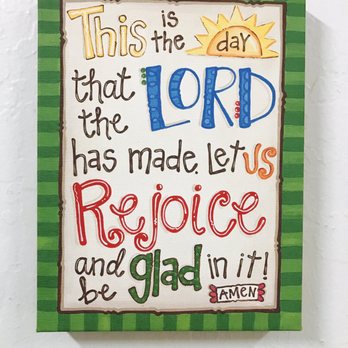 This is the day
that the LORD
has made. Let us
Rejoice
and be glad in it!
AMEN